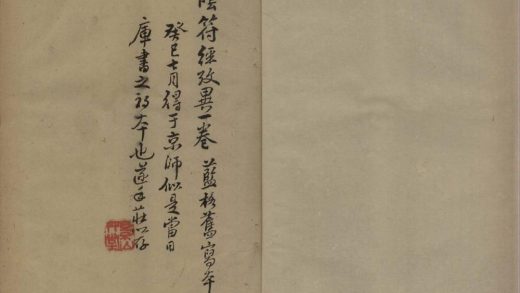 陰符經攷異一卷 藍格舊寫本
癸巳七月得于京師似是當日
庫書之初本也蓬手莊以存